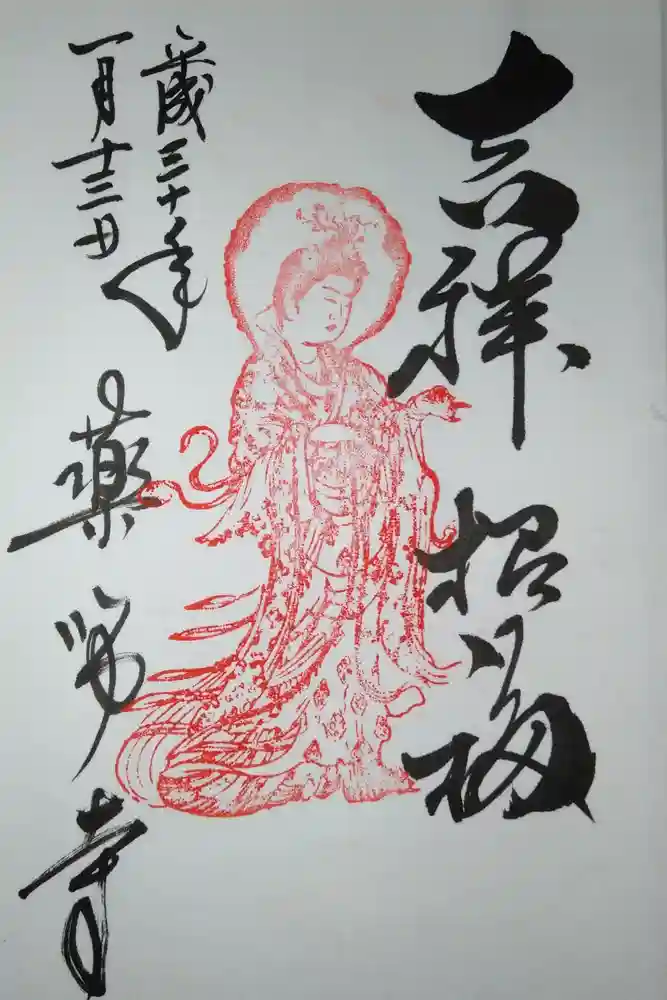 吉祥招福
歳三十年
一月十三日
薬師寺